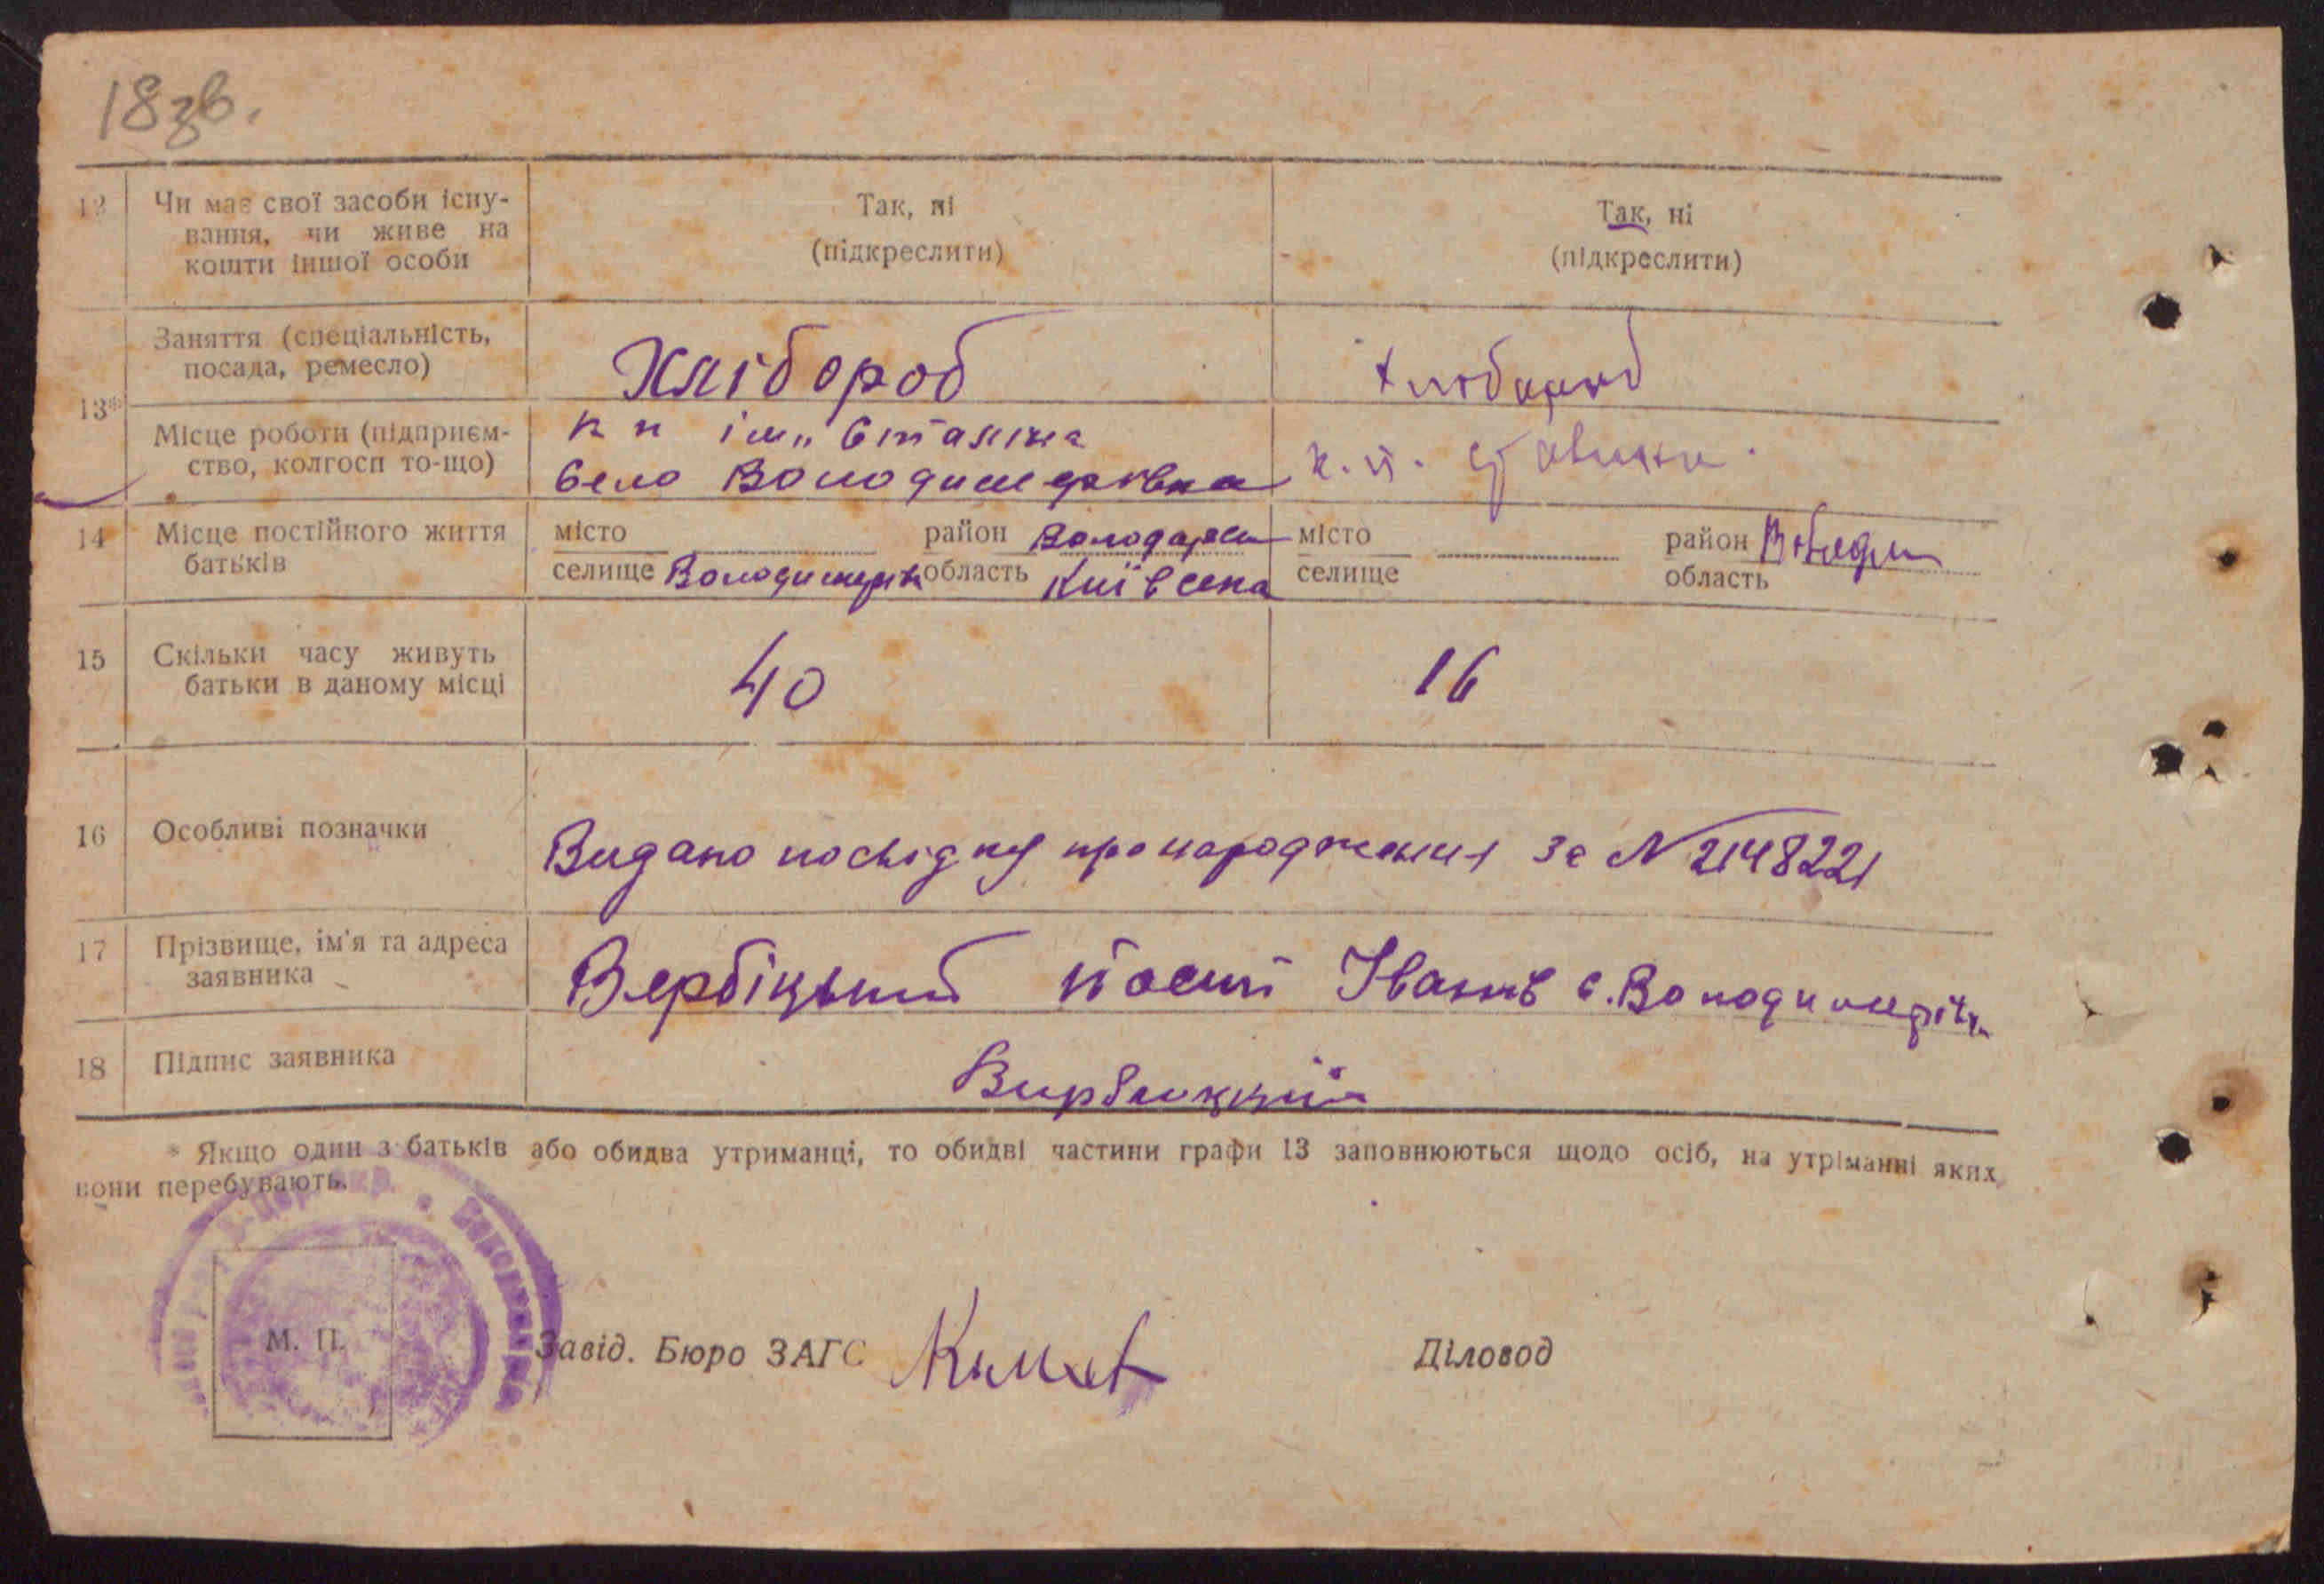 18зв.
12 Чи має свої засоби існу-
вання, чи живе на
кошти іншої особи
Так, ні
(підкреслити)
Так, ні
(підкреслити)
13*
Заняття (спеціальність,
посада, ремесло)
Хлібороб
Місце роботи (підприєм-
ство, колгосп то-що)
к п імн Сталіна
село Володимерівка
к. п.
14 Місце постійного життя
батьків
місто район Володарск
селище Володимерівк область Київська
місто район
селище область
15 Скільки часу живуть
батьки в даному місці
40
16
16 Особливі позначки
Видано посвідку про народження за № 2148221
17 Прізвище, ім'я та адреса
заявника
Вербіцький Йосип Іванів с. Володимерівка
18 Підпис заявника
* Якщо один з батьків або обидва утриманці, то обидві частини графи 13 заповнюються щодо осіб, на утріманні яких
вони перебувають.
М. П.
Завід. Бюро ЗАГС
Діловод